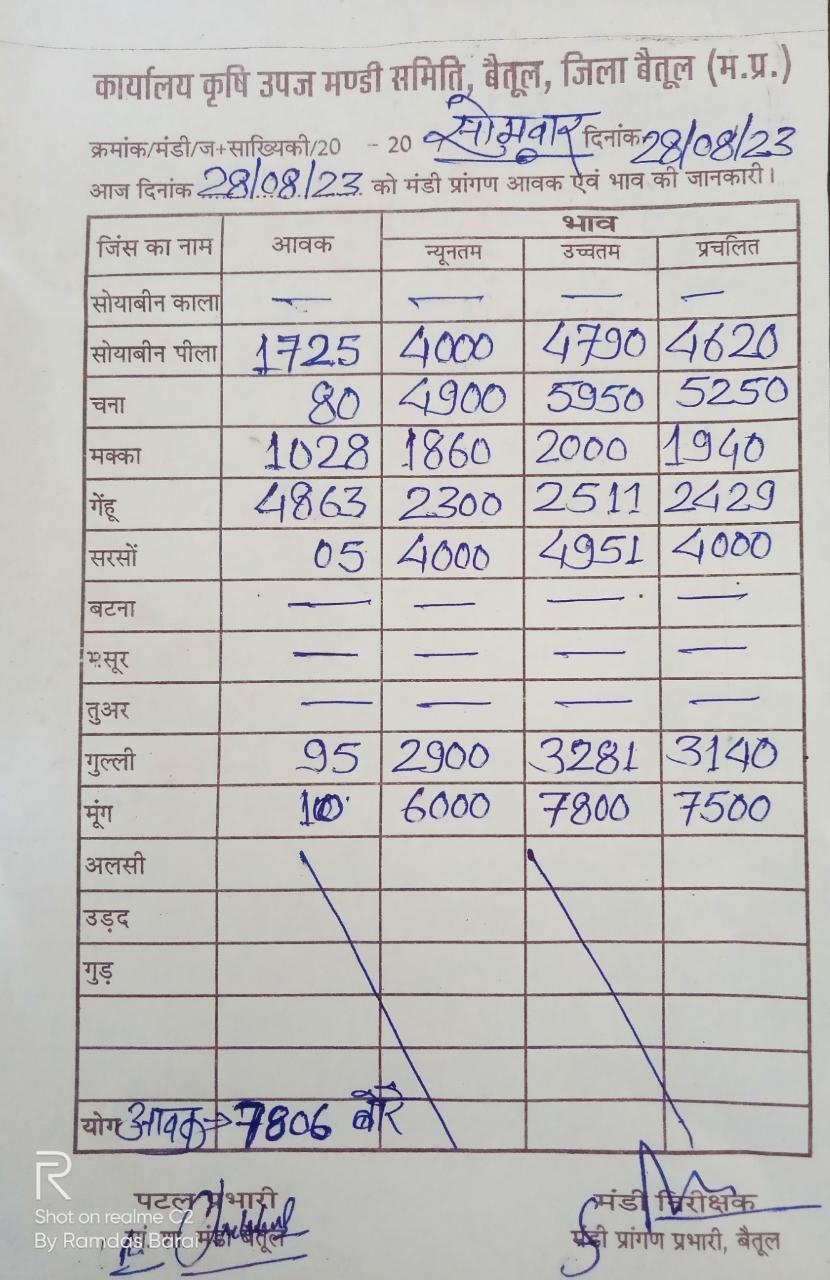 कार्यालय कृषि उपज मण्डी समिति, बैतूल, जिला बैतूल (म.प्र.)
क्रमांक/मंडी/ज+साख्यिकी/20 - 20 सोमवार दिनांक 28/08/23
आज दिनांक 28/08/23 को मंडी प्रांगण आवक एवं भाव की जानकारी।
जिंस का नाम आवक भाव
न्यूनतम उच्चतम प्रचलित
सोयाबीन काला — — — —
सोयाबीन पीला 1725 4000 4790 4620
चना 80 4900 5950 5250
मक्का 1028 1860 2000 1940
गेंहू 4863 2300 2511 2429
सरसों 05 4000 4951 4000
बटना — — — —
मसूर — — — —
तुअर — — — —
गुल्ली 95 2900 3281 3140
मूंग 10 6000 7800 7500
अलसी
उड़द
गुड़
योग आवक → 7806 बोरे
पटल प्रभारी मंडी निरीक्षक
मंडी बैतूल मंडी प्रांगण प्रभारी, बैतूल
R
Shot on realme C2
By Ramdas Barai